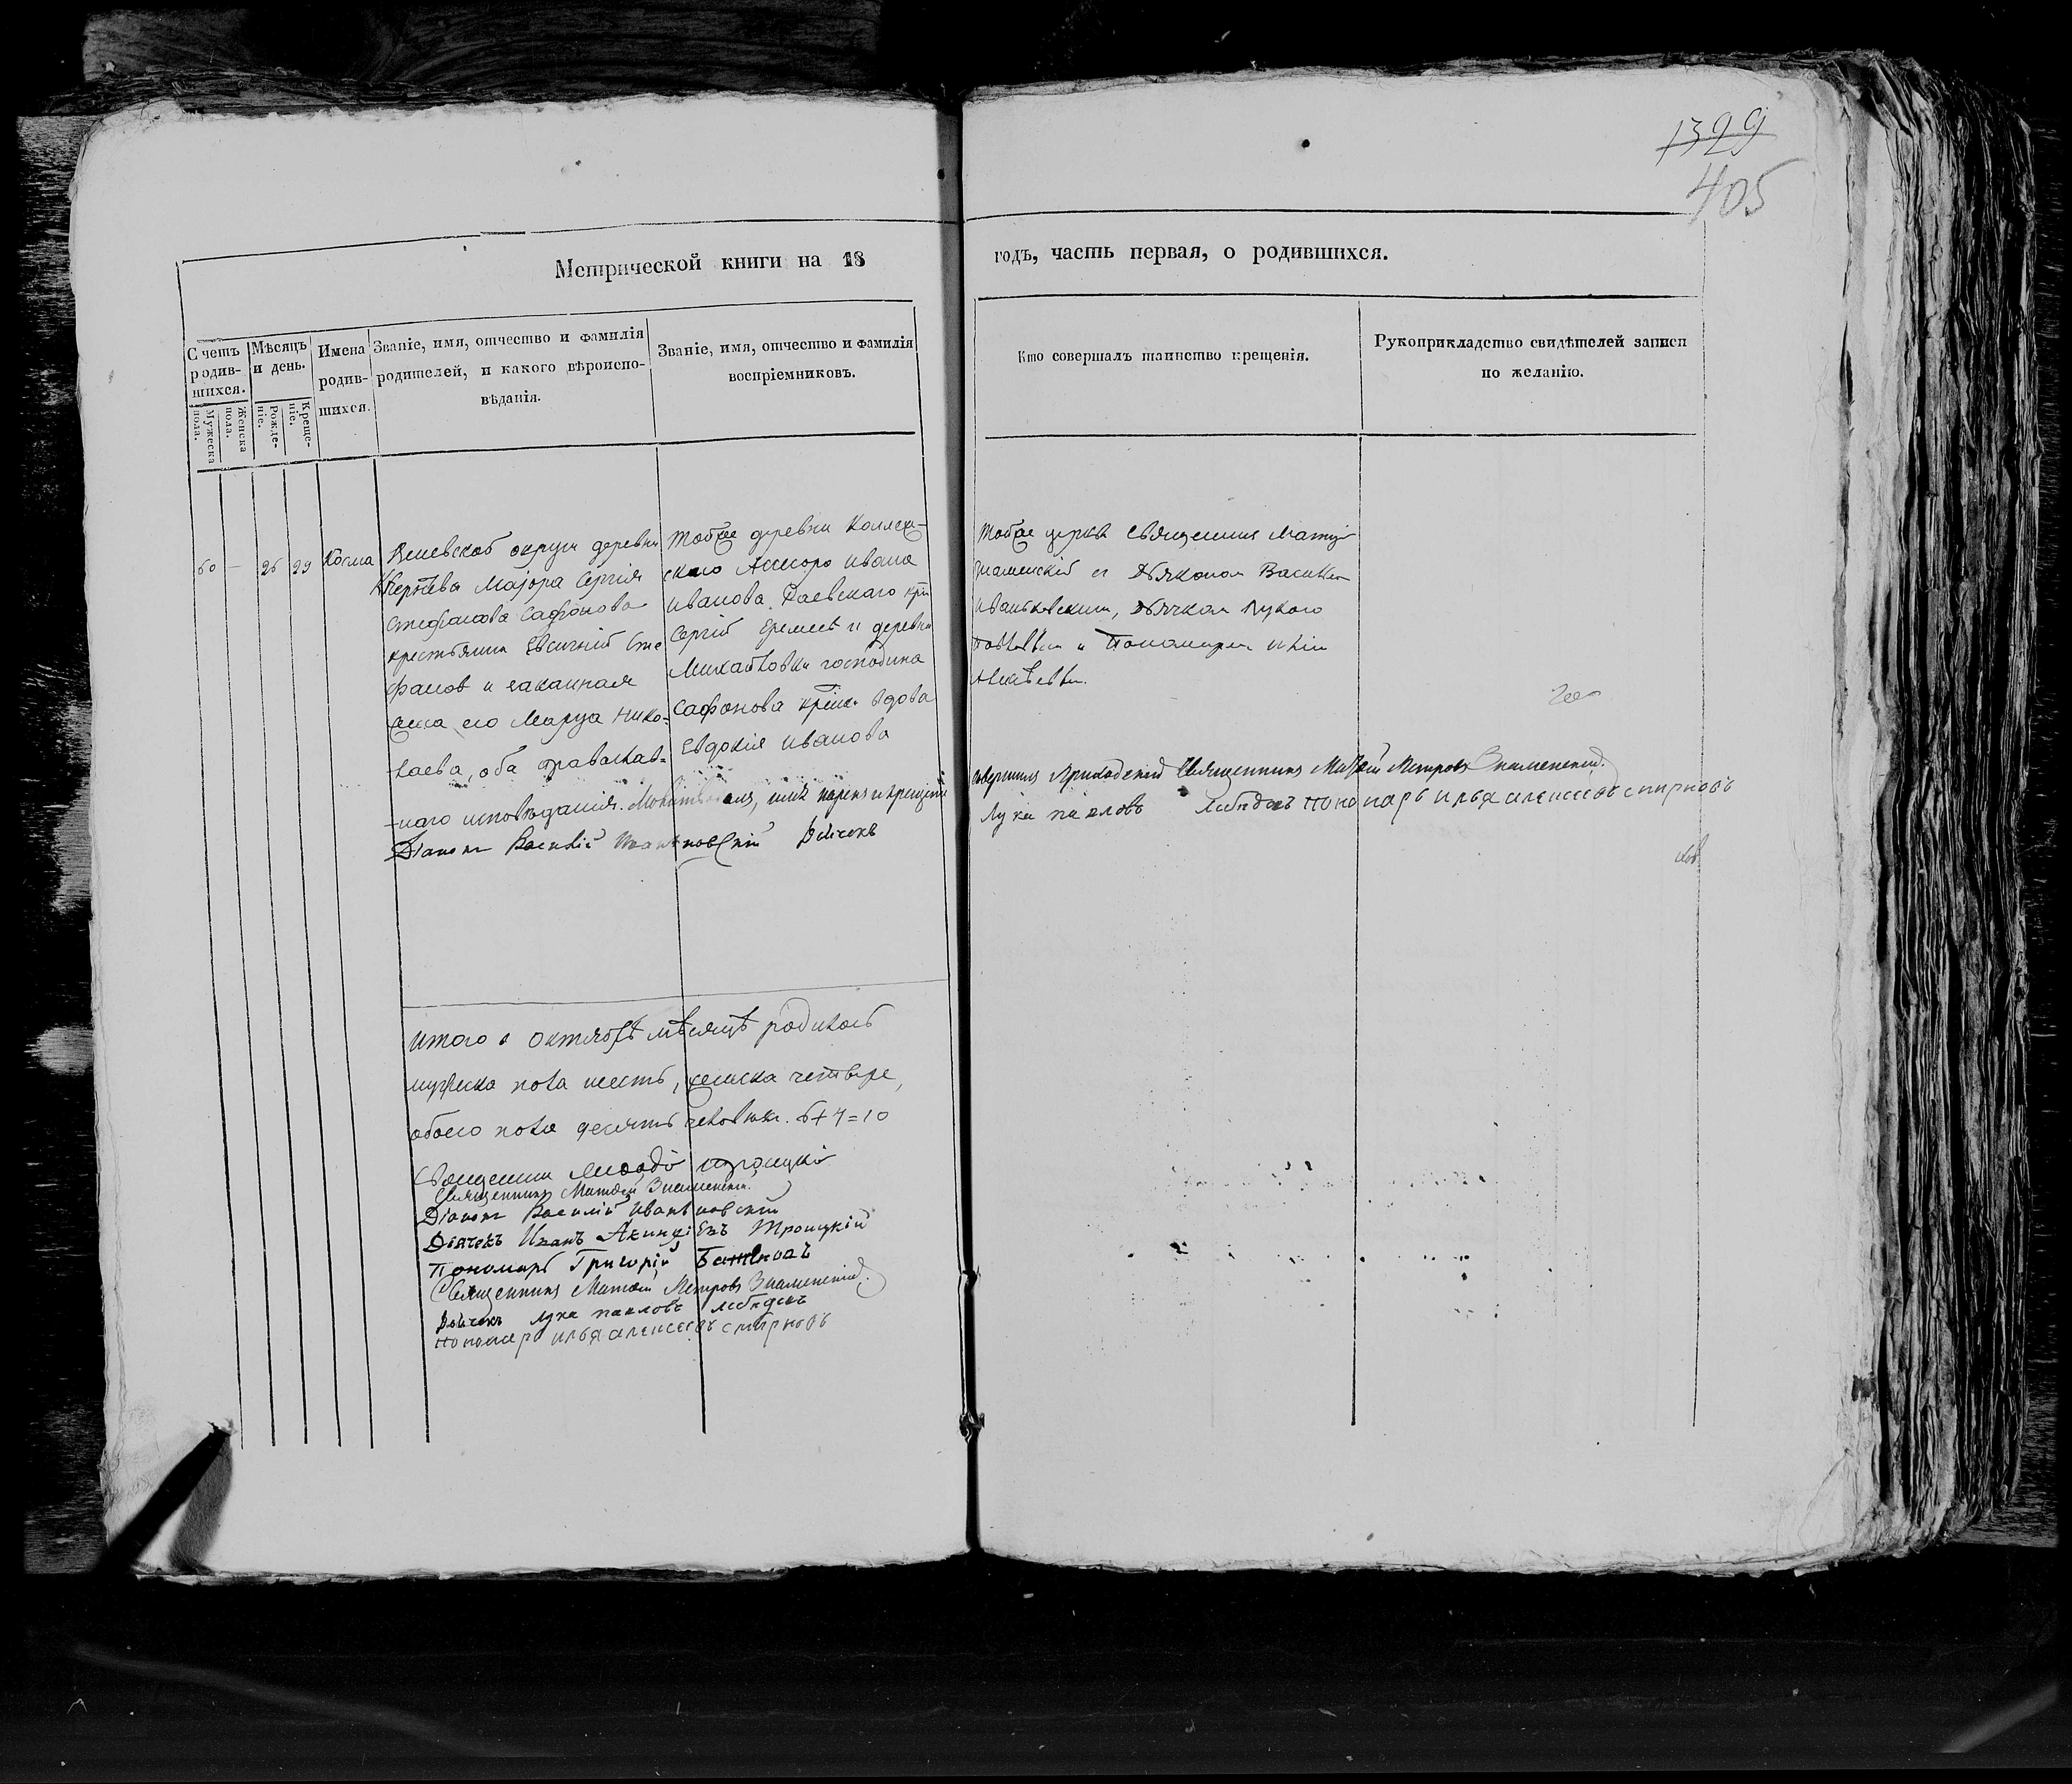 1399
405
Метрической книги на 18
годъ, часть первая, о родившихся.
Счетъ родив-шихся.
Мужеска пола.
Женска пола.
Мѣсяцъ и день.
Рожде-ніе.
Креще-ніе.
Имена родив-шихся.
Званіе, имя, отчество и фамилія
родителей, и какого вѣроиспо-
вѣданія.
Званіе, имя, отчество и фамилія
воспріемниковъ.
Кто совершалъ таинство крещенія.
Рукоприкладство свидѣтелей записи
по желанію.
60 — 26 29 Косма
округи деревни
Маіора Сергія
Стефанова Сафонова
крестьянинъ Евсигній Сте
фановъ и законная
жена его Марѳа Нико-
лаева, оба православ-
наго исповѣданія.
тойже деревни Коллеж-
скаго Ассесора Ивана
Иванова Раевскаго
Сергій Еремеевъ и деревни
Михайловки господина
Сафонова вдова
Евдокія Иванова
тойже церкви Священникъ Матѳій
Знаменскій съ Дьякономъ Василіем
Иваньковскимъ, Дьячком Лукою
Павловымъ и Пономаремъ Иліею
Алексѣевымъ.
Молитвовалъ, имя нарекъ и крещеніе
совершилъ Приходскій Священникъ Матѳій Петровъ Знаменскій.
Діаконъ Василій Иваньковскій Дьячекъ
Лука павловъ Лебедевъ пономарь илья алексеевъ смирновъ
итого в октябрѣ мѣсяцѣ родилось
мужеска пола шесть, женска четыре,
обоего пола десять человѣкъ. 6+4=10
Священникъ Троицкій
Священникъ Матѳій Знаменскій.
Діаконъ Василій Иваньковскій
Дьячекъ Иванъ Троицкій
Пономарь Григорій
Священникъ Матѳій Петровъ Знаменскій.
Дьячекъ Лука павловъ лебедевъ
пономарь илья алексеевъ смирновъ